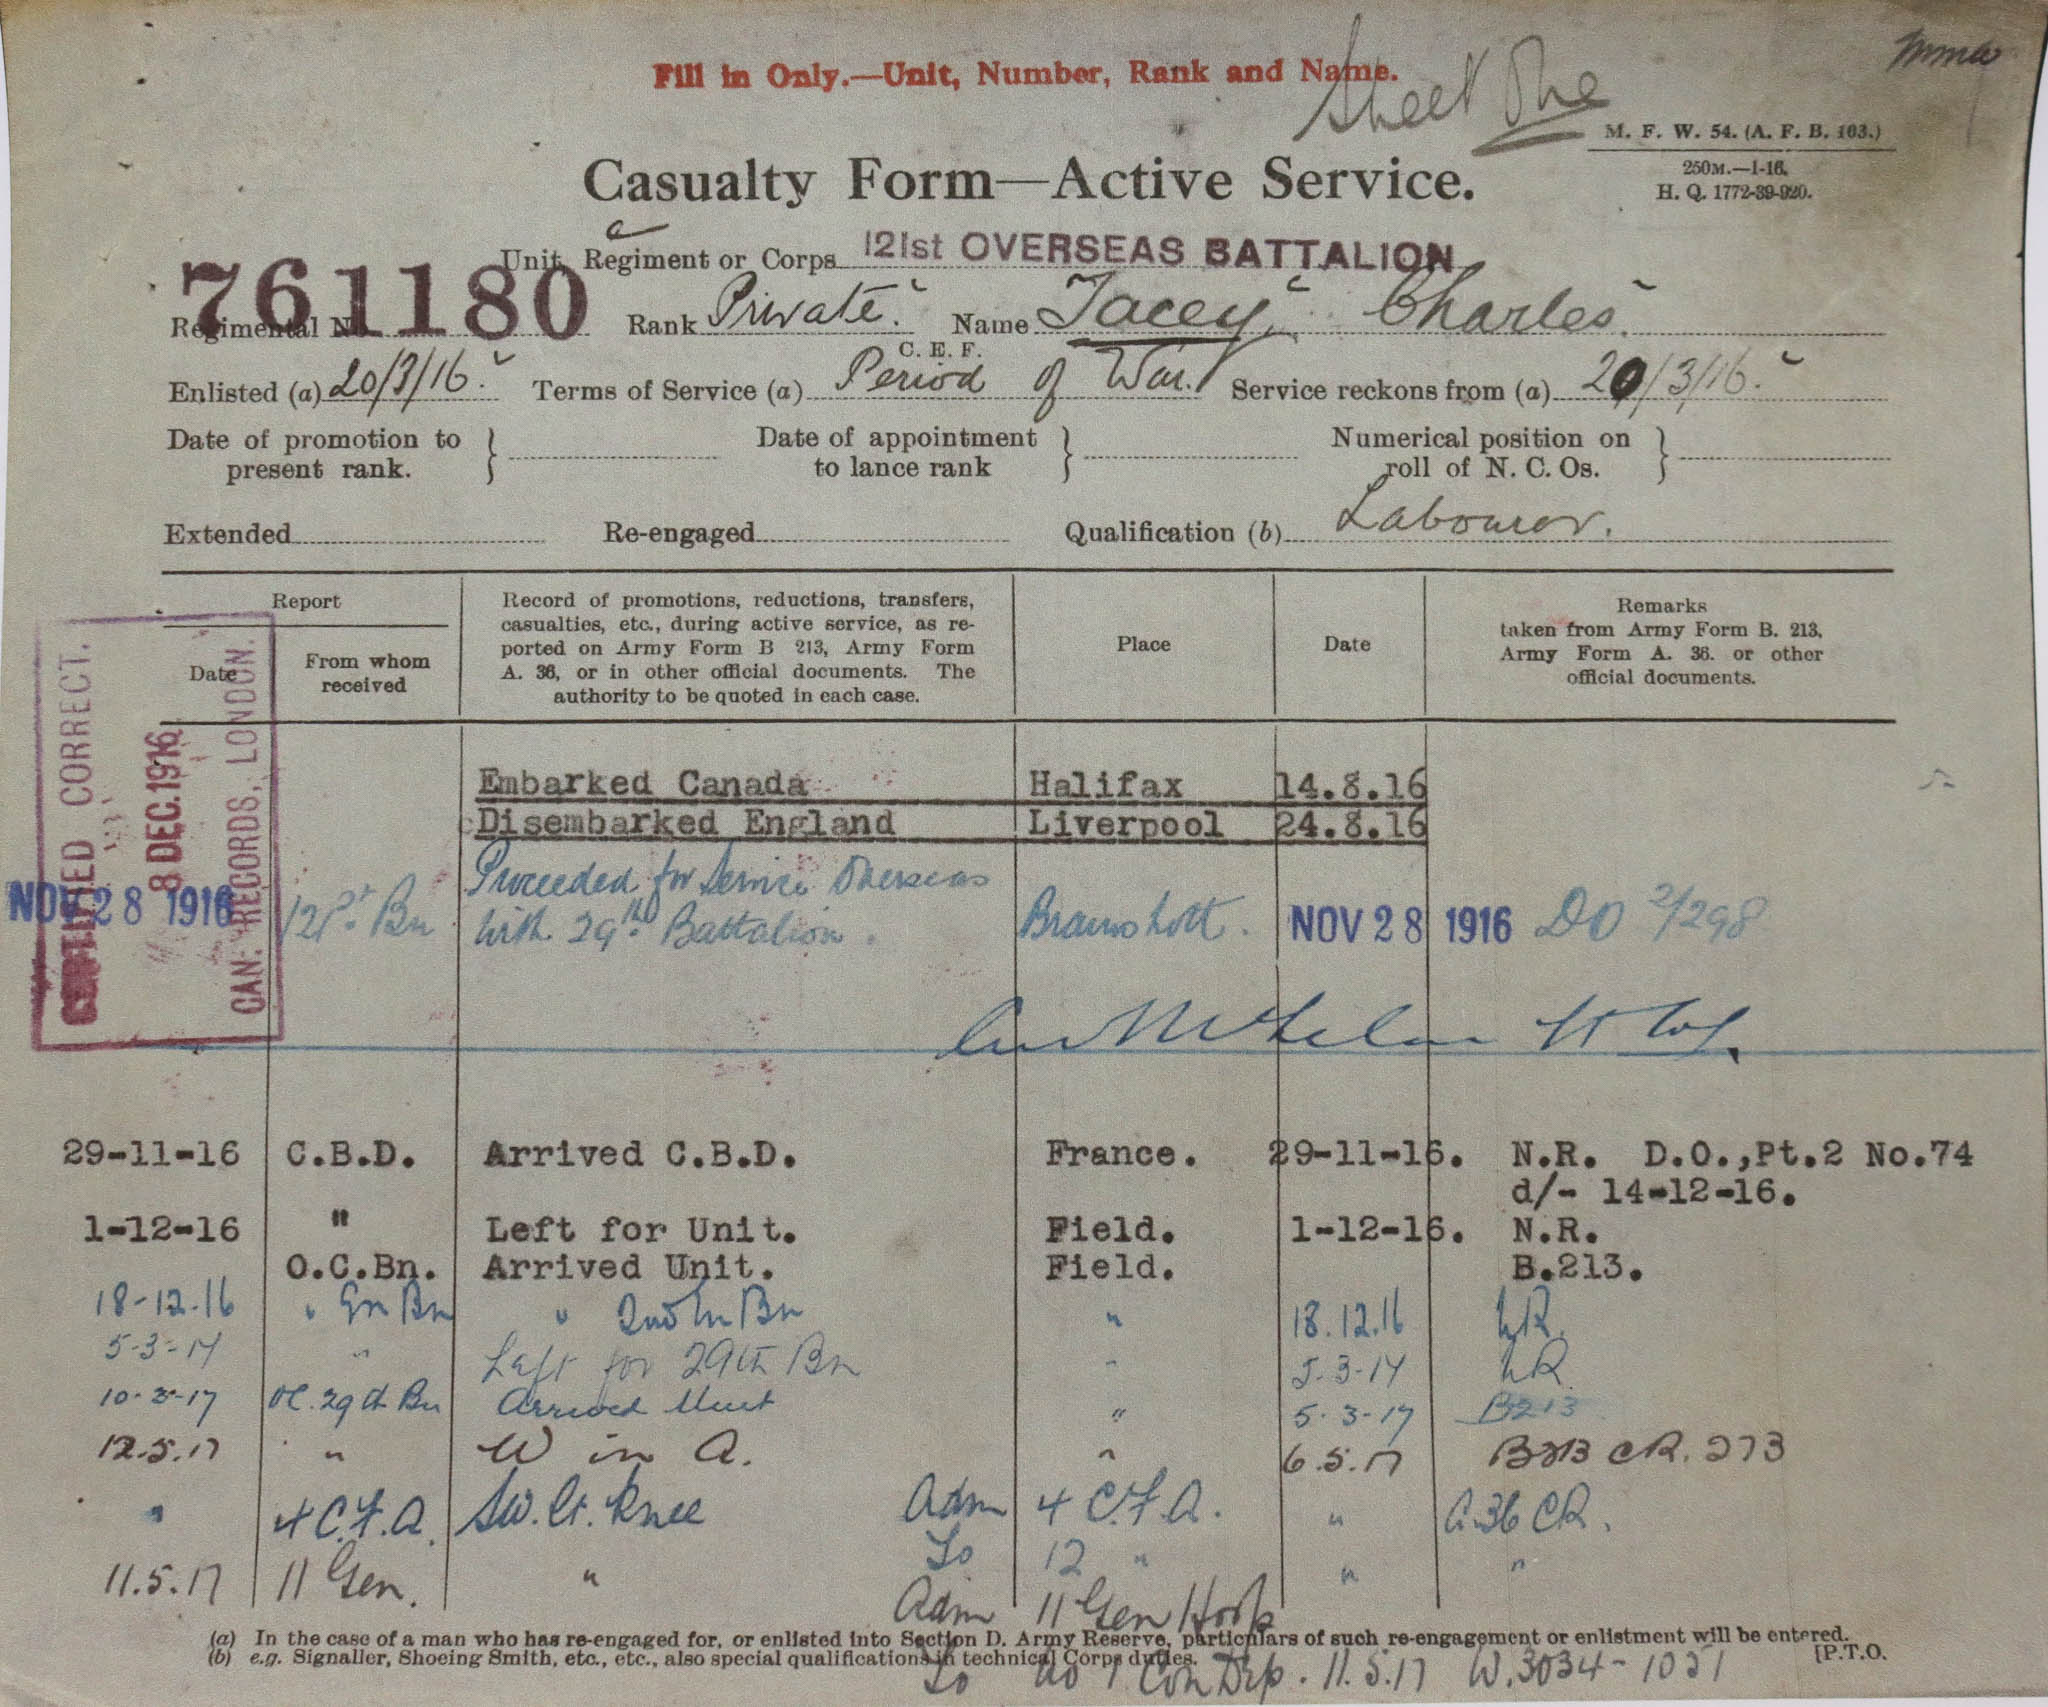 Sheet One
Fill in Only.—Unit, Number, Rank and Name.
M. F. W. 54. (A. F. B. 103.)
250M.—1-16.
H. Q. 1772-39-920.
Casualty Form—Active Service.
Unit, Regiment or Corps 121st OVERSEAS BATTALION
Regimental No. 761180 Rank Private. Name Tacey, Charles.
C. E. F.
Enlisted (a) 20/3/16. Terms of Service (a) Period of War. Service reckons from (a) 20/3/16.
Date of promotion to present rank. } Date of appointment to lance rank } Numerical position on roll of N. C. Os. }
Extended Re-engaged Qualification (b) Labourer.
Report
Date
From whom received
Record of promotions, reductions, transfers,
casualties, etc., during active service, as re-
ported on Army Form B 213, Army Form
A. 36, or in other official documents. The
authority to be quoted in each case.
Place
Date
Remarks
taken from Army Form B. 213,
Army Form A. 36. or other
official documents.
CERTIFIED CORRECT.
8 DEC. 1916
CAN: RECORDS, LONDON.
Embarked Canada Halifax 14.8.16
Disembarked England Liverpool 24.8.16
NOV 28 1916 121st Bn Proceeded for Service Overseas
with 29th Battalion. Bramshott. NOV 28 1916 DO 2/298
29-11-16 C.B.D. Arrived C.B.D. France. 29-11-16. N.R. D.O.,Pt.2 No.74
d/- 14-12-16.
1-12-16 " Left for Unit. Field. 1-12-16. N.R.
O.C.Bn. Arrived Unit. Field. B.213.
18-12-16 " En Bn " 2nd En Bn " 18.12.16 NR.
5-3-17 " Left for 29th Bn " 5-3-17 NR
10-3-17 OC. 29th Bn Arrived Unit " 5-3-17 B213
12.5.17 " W in A. " 6.5.17 B213 CR. 273
" 4 C.F.A. SW. Lt. Knee Adm 4 C.F.A. " A.36 CR.
To 12 " " "
11.5.17 11 Gen. " Adm 11 Gen Hosp
(a) In the case of a man who has re-engaged for, or enlisted into Section D. Army Reserve, particulars of such re-engagement or enlistment will be entered.
(b) e.g. Signaller, Shoeing Smith, etc., etc., also special qualifications in technical Corps duties.
[P.T.O.
To No 1 Con Dep. 11.5.17 W.3034-1051